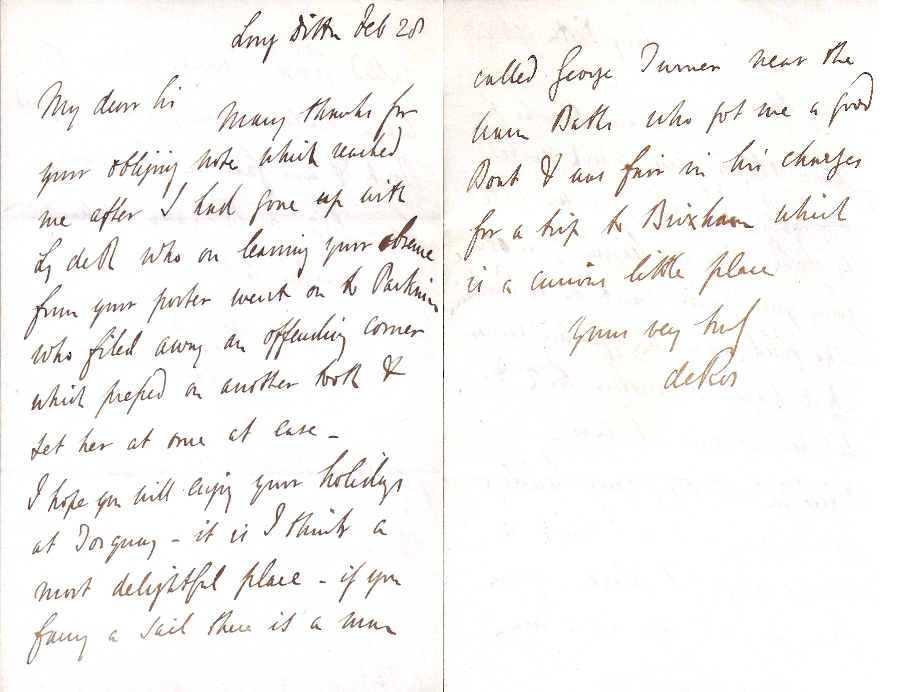 Long Ditton Feb 28
My dear Sir
Many thanks for
your obliging note which reached
me after I had gone up with
Ly deR who on learning your absence
from your porter went on to Parkinson
who filed away an offending corner
which pressed on another tooth &
set her at once at ease -
I hope you will enjoy your holidays
at Torquay - it is I think a
most delightful place - if you
fancy a sail there is a man
called George Turner near the
Baths who got me a good
Boat & was fair in his charges
for a trip to Brixham which
is a curious little place
Yours very truly
deRos